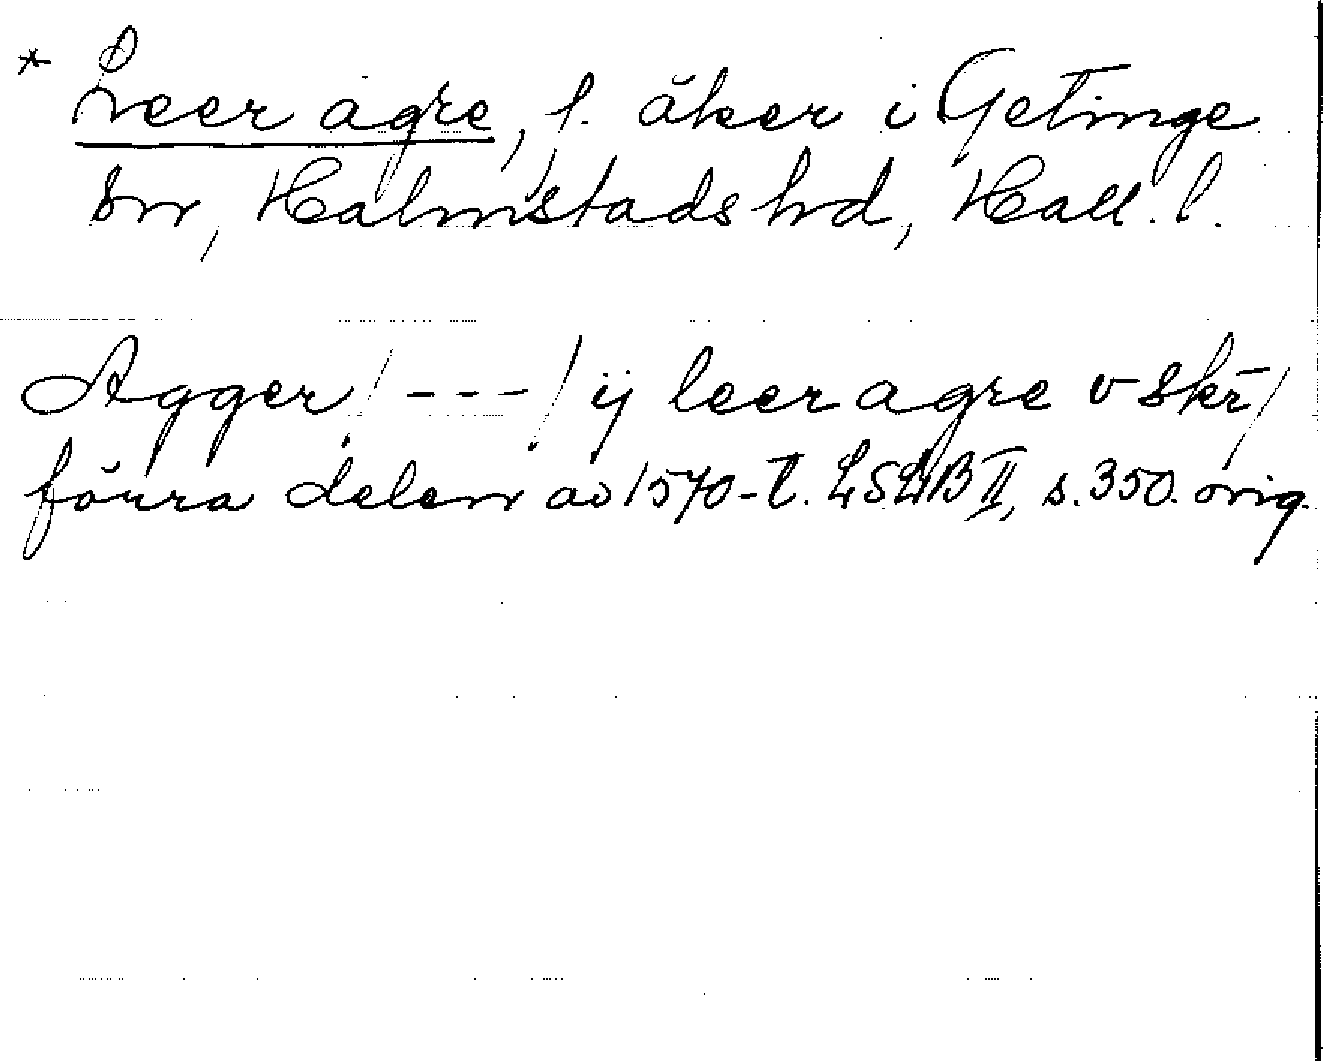 * Leer agre, f. åker i Getinge
sn, Halmstads hd, Hall. l.
Agger / - - - / ij leer agre v skr̄ /
förra delen av 1570-t. LSLB II, s. 350. orig.